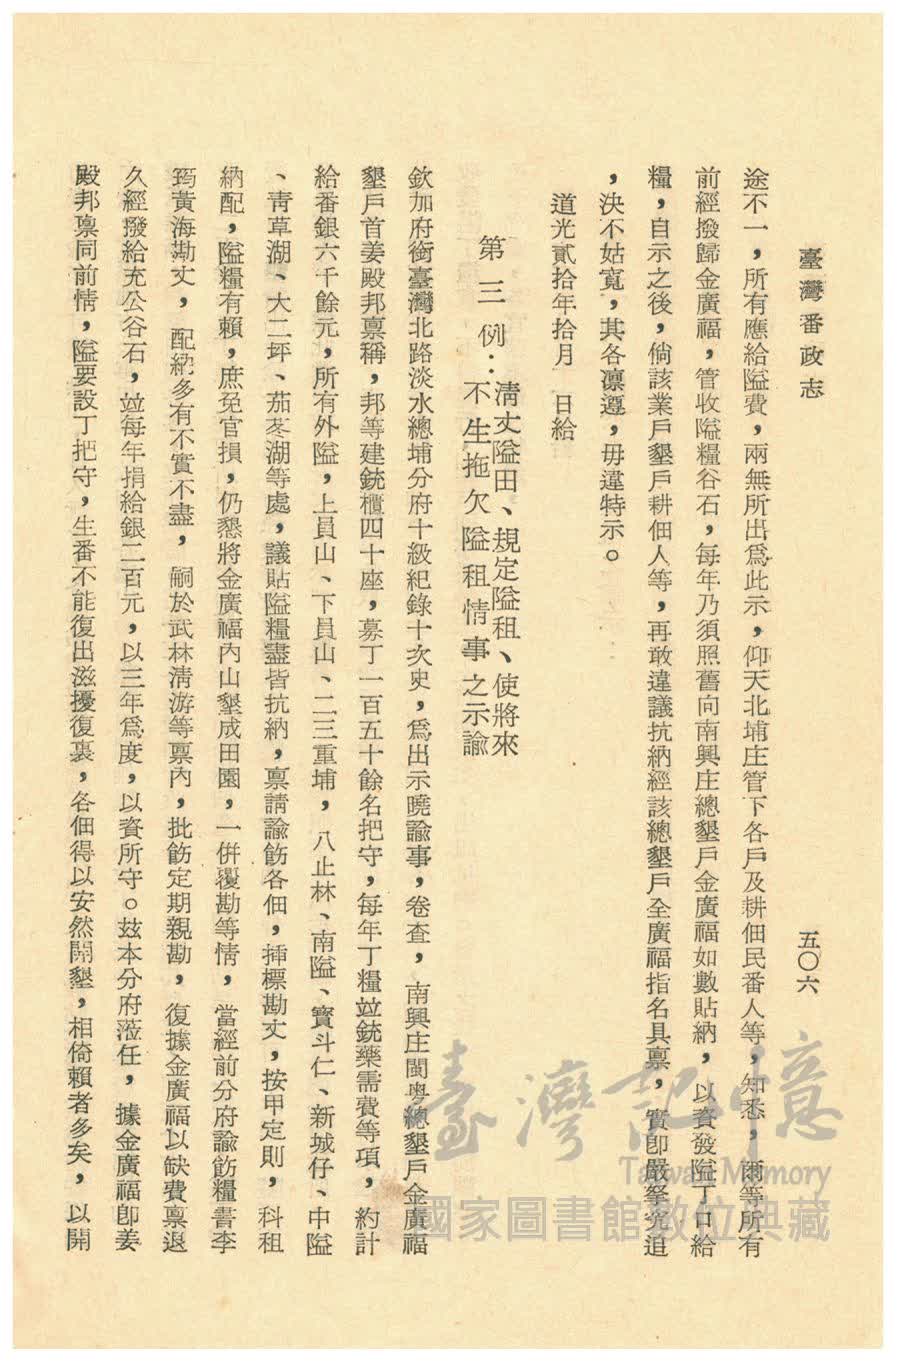 臺灣番政志
五〇六
途不一，所有應給隘費，兩無所出爲此示，仰天北埔庄管下各戶及耕佃民番人等，知悉，爾等所有
前經撥歸金廣福，管收隘糧谷石，每年乃須照舊向南興庄總墾戶金廣福如數貼納，以資發隘丁口給
糧，自示之後，倘該業戶墾戶耕佃人等，再敢違議抗納經該總墾戶全廣福指名具禀，實卽嚴拏究追
，決不姑寬，其各凛遵，毋違特示。
道光貳拾年拾月　日給
第三例：淸丈隘田、規定隘租、使將來
不生拖欠隘租情事之示諭
欽加府銜臺灣北路淡水總埔分府十級紀錄十次史，爲出示曉諭事，卷查，南興庄閩粵總墾戶金廣福
墾戶首姜殿邦禀稱，邦等建銃櫃四十座，募丁一百五十餘名把守，每年丁糧並銃藥需費等項，約計
給番銀六千餘元，所有外隘，上員山、下員山、二三重埔，八止林、南隘、寳斗仁、新城仔、中隘
、靑草湖、大二坪、茄苳湖等處，議貼隘糧盡皆抗納，禀請諭飭各佃，揷標勘丈，按甲定則，科租
納配，隘糧有賴，庶免官損，仍懇將金廣福內山墾成田園，一倂覆勘等情，當經前分府諭飭糧書李
筠黃海勘丈，配納多有不實不盡，嗣於武林淸游等禀內，批飭定期親勘，復據金廣福以缺費禀退
久經撥給充公谷石，並每年捐給銀二百元，以三年爲度，以資所守。玆本分府蒞任，據金廣福卽姜
殿邦禀同前情，隘要設丁把守，生番不能復出滋擾復裏，各佃得以安然開墾，相倚賴者多矣，以開
臺灣記憶
Taiwan Memory
國家圖書館數位典藏